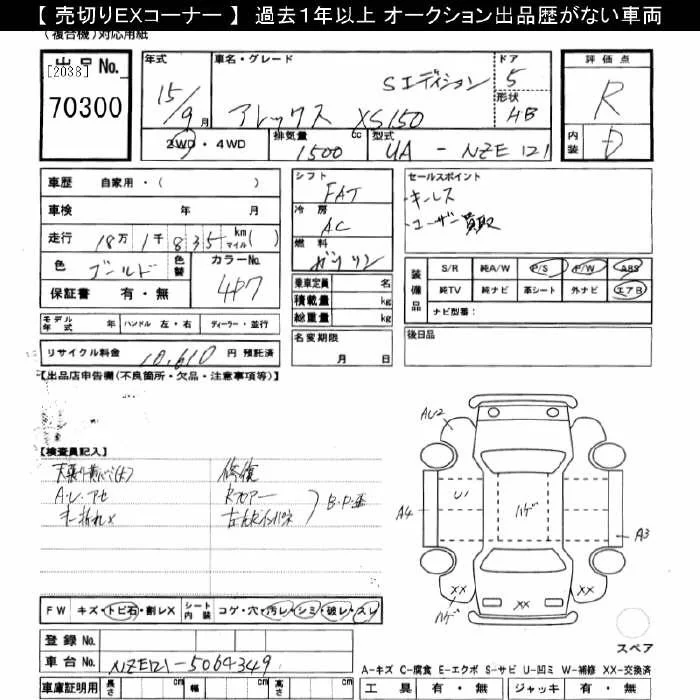 【 売切りEXコーナー 】 過去１年以上 オークション出品歴がない車両
(複合機)対応用紙
出品No.
[2038]
70300
年式
15/9月
車名・グレード
Sエディション
アレックス XS150
ドア
5
形状
HB
2WD・4WD
排気量
1500cc
型式
UA - NZE121
評価点
R
内装
D
車歴 自家用・( )
車検 年 月
走行 18万 1千 835 km マイル( )
色 ゴールド 色替
カラーNo.
4P7
保証書 有・無
シフト
FAT
冷房
AC
燃料
ガソリン
乗車定員 名
積載量 kg
総重量 kg
セールスポイント
・キーレス
・ユーザー買取
装備品
S/R 純A/W P/S P/W ABS
純TV 純ナビ 革シート 外ナビ エアB
ナビ型番：
モデル年式 年 ハンドル 左・右 ディーラー・並行
名変期限
月 日
後日品
リサイクル料金 10,610 円 預託済
【出品店申告欄(不良箇所・欠品・注意事項等)】
【検査員記入】
修復
A.V.アセ
Rフロアー
B.P.歪
手折れ×
AU2
A4
U1
ハゲ
A3
XX
XX
XX
ハゲ
FW キズ・トビ石・割レX シート内装 コゲ・穴・汚レ・シミ・破レ・スレ
スペア
登録 No.
車台 No. NZE121-5064349
A-キズ C-腐食 E-エクボ S-サビ U-凹ミ W-補修 XX-交換済
車庫証明用 長さ cm 幅 cm 高さ cm
工具 有・無 ジャッキ 有・無